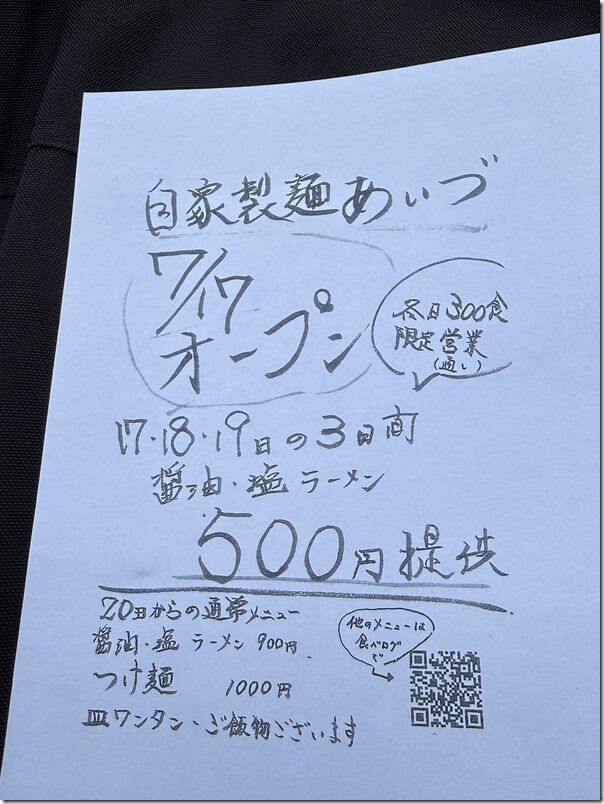 自家製麺あいづ
7/17
オープン
各日300食
限定営業
(通し)
17・18・19日の3日間
醤油・塩ラーメン
500円提供
20日からの通常メニュー
醤油・塩ラーメン 900円
つけ麺 1000円
皿ワンタン、ご飯物ございます
他のメニューは
食べログ
で